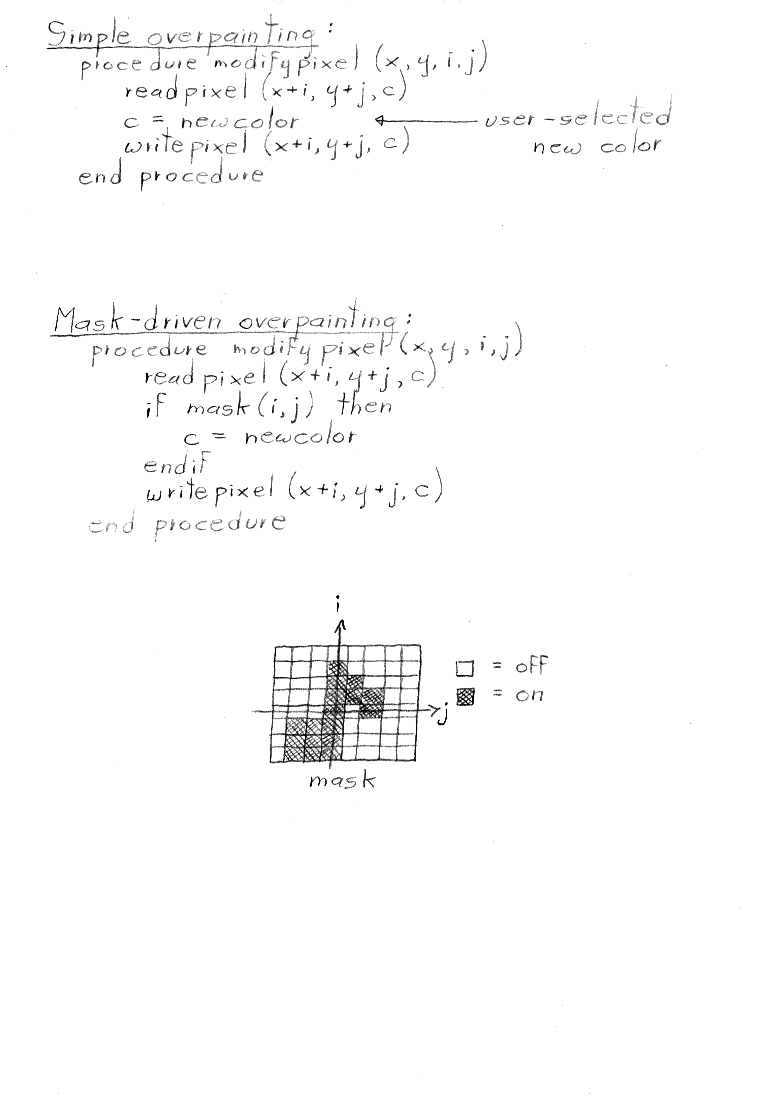 Simple overpainting:
procedure modify pixel (x, y, i, j)
read pixel (x+i, y+j, c)
c = newcolor ← user-selected
write pixel (x+i, y+j, c) new color
end procedure
Mask-driven overpainting:
procedure modify pixel (x, y, i, j)
read pixel (x+i, y+j, c)
if mask(i, j) then
c = newcolor
endif
write pixel (x+i, y+j, c)
end procedure
i
= off
= on
j
mask